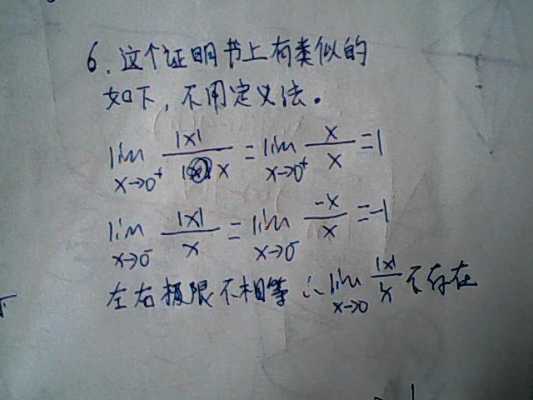 6. 这个证明书上有类似的
如下，不用定义法。
lim x→0⁺ |x|/x = lim x→0⁺ x/x = 1
lim x→0⁻ |x|/x = lim x→0⁻ -x/x = -1
左右极限不相等 ∴ lim x→0 |x|/x 不存在